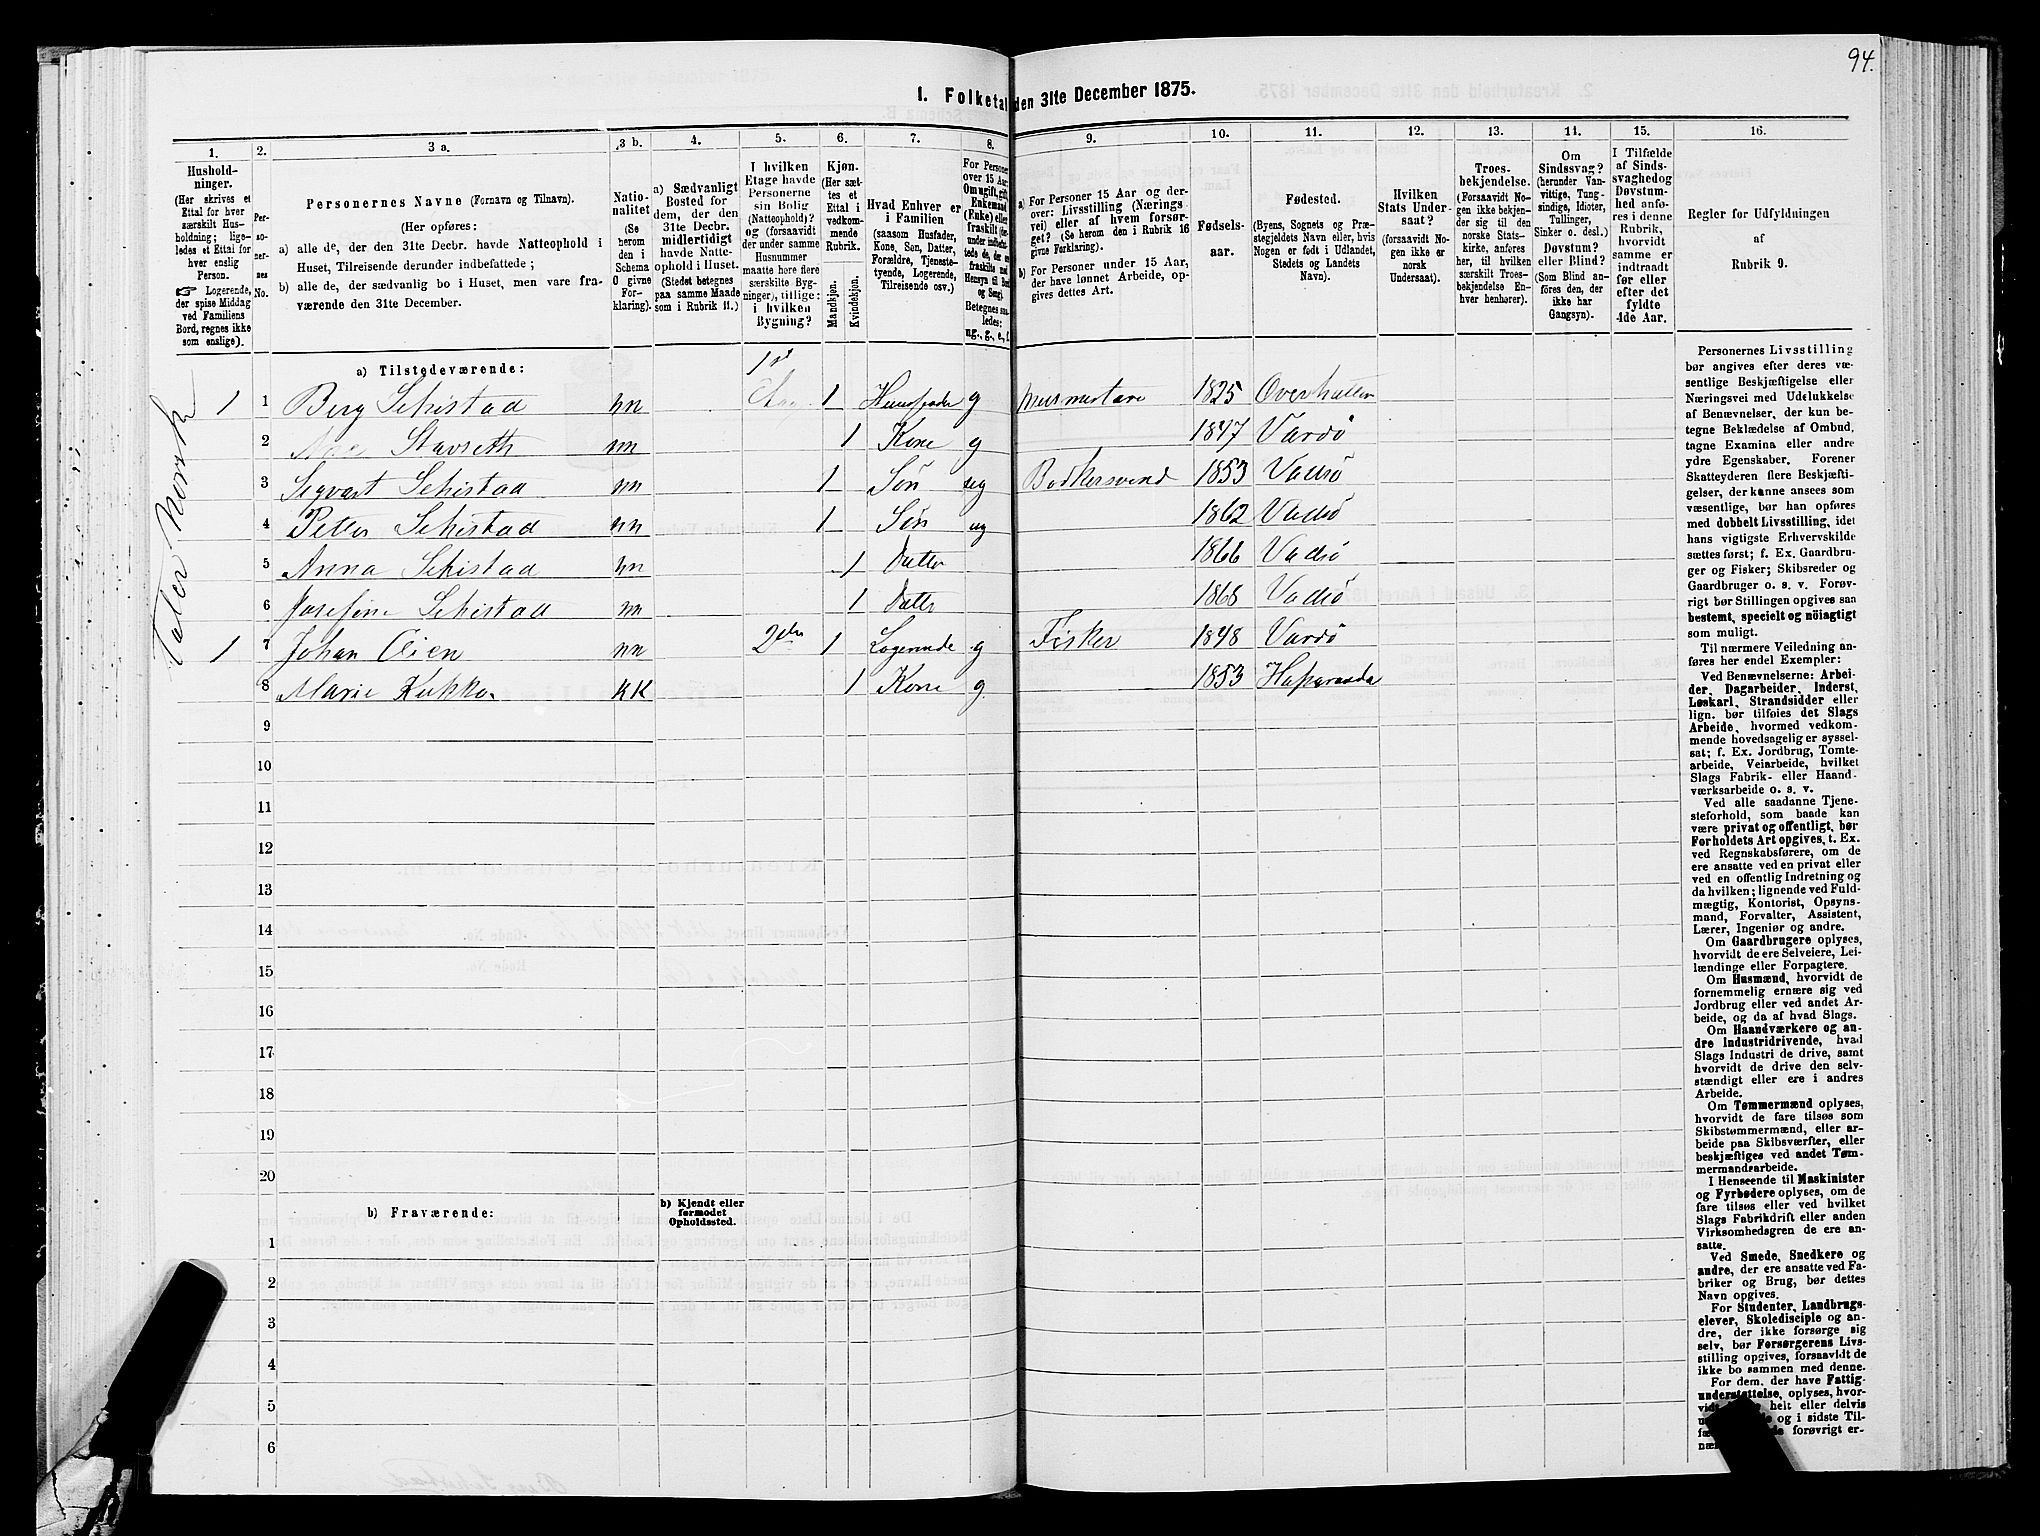 94.
1. Folketal den 31te December 1875.
1.
Hushold-
ninger.
(Her skrives et
Ettal for hver
særskilt Hus-
holdning; lige-
ledes et Ettal for
hver enslig
Person.
☞ Logerende,
der spise Middag
ved Familiens
Bord, regnes ikke
som enslige).
2.
Per-
so-
ner-
nes
No.
3 a.
Personernes Navne (Fornavn og Tilnavn).
(Her opføres:
a) alle de, der den 31te Decbr. havde Natteophold i
Huset, Tilreisende derunder indbefattede;
b) alle de, der sædvanlig bo i Huset, men vare fra-
værende den 31te December.
3 b.
Natio-
nalitet
(Se
herom
den i
Schema
O givne
For-
klaring).
4.
a) Sædvanligt
Bosted for
dem, der den
31te Decbr.
midlertidigt
havde Natte-
ophold i Huset.
(Stedet betegnes
paa samme Maade
som i Rubrik 11.)
5.
I hvilken
Etage havde
Personerne
sin Bolig
(Natteophold)?
og (forsaavidt
der under samme
Husnummer
maatte høre flere
særskilte Byg-
ninger), titlige:
i hvilken
Bygning?
6.
Kjøn.
(Her sæt-
tes et
Ettal i
vedkom-
mende
Rubrik.
Mandkjøn.
Kvindekjøn.
7.
Hvad Enhver er
i Familien
(saasom Husfader,
Kone, Søn, Datter,
Forældre, Tjeneste-
tyende, Logerende,
Tilreisende osv.)
8.
For Personer
over 15 Aar:
Om ugift, gift,
Enkemand
(Enke) eller
fraskilt
Betegnes saa-
ledes:
ug., g., e., f.
9.
a) For Personer 15 Aar og der-
over: Livsstilling (Nærings-
vei) eller af hvem forsør-
get? (Se herom den i Rubrik 16
givne Forklaring).
b) For Personer under 15 Aar,
der have lønnet Arbeide, op-
gives dettes Art.
10.
Fødsels-
aar.
11.
Fødested.
(Byens, Sognets og Præ-
stegjeldets Navn eller, hvis
Nogen er født i Udlandet,
Stedets og Landets
Navn).
12.
Hvilken
Stats Under-
saat?
(forsaavidt No-
gen ikke er
norsk
Undersaat).
13.
Troes-
bekjendelse.
(Forsaavidt No-
gen ikke bekjen-
der sig til den
norske Stats-
kirke, anføres
her, til hvilken
særskilt Troes-
bekjendelse En-
hver henhører).
14.
Om
Sindssvag?
(herunder Van-
vittige, Tung-
sindige, Idioter,
Tullinger,
Sinker o. desl.)
Døvstum?
eller Blind?
(Som Blind an-
føres den, der
ikke har
Gangsyn).
15.
I Tilfælde
af Sinds-
svaghed og
Døvstum-
hed anfø-
res i denne
Rubrik,
hvorvidt
samme er
indtraadt
før eller
efter det
fyldte
4de Aar.
16.
Regler for Udfyldningen
af
Rubrik 9.
a) Tilstedeværende:
Taler Norsk
1 1 Berg Schistad nn 1st 1 Huusfader g 1825
2 Stavseth nn 1 Kone g 1847 Vardø
3 Sigvart Schistad nn 1 Søn ug Bødkersvend 1853 Vadsø
4 Petter Schistad nn 1 Søn ug 1862 Vadsø
5 Anna Schistad nn 1 Datter 1866 Vadsø
6 Josefine Schistad nn 1 Datter 1868 Vadsø
1 7 Johan nn 2den 1 Logerende g Fisker 1848 Vardø
8 Marie Kukko KK 1 Kone g 1853 Haparanda
9
10
11
12
13
14
15
16
17
18
19
20
b) Fraværende:
b) Kjendt eller
formodet
Opholdssted.
1
2
3
4
5
6
Personernes Livsstilling
bør angives efter deres væ-
sentlige Beskjæftigelse eller
Næringsvei med Udelukkelse
af Benævnelser, der kun be-
tegne Beklædelse af Ombud,
tagne Examina eller andre
ydre Egenskaber. Forener
Skatteyderen flere Beskjæfti-
gelser, der kunne ansees som
væsentlige, bør han opføres
med dobbelt Livsstilling, idet
hans vigtigste Erhvervskilde
sættes først; f. Ex. Gaardbru-
ger og Fisker; Skibsreder og
Gaardbruger o. s. v. Forøv-
rigt bør Stillingen opgives saa
bestemt, specielt og nöiagtigt
som muligt.
Til nærmere Veiledning an-
føres her endel Exempler:
Ved Benævnelserne: Arbei-
der, Dagarbeider, Inderst,
Løskarl, Strandsidder eller
lign. bør tilføies det Slags
Arbeide, hvormed vedkom-
mende hovedsagelig er syssel-
sat; f. Ex. Jordbrug, Tomte-
arbeide, Veiarbeide, hvilket
Slags Fabrik- eller Haand-
værksarbeide o. s. v.
Ved alle saadanne Tjene-
steforhold, som baade kan
være privat og offentligt, bør
Forholdets Art opgives, t. Ex.
ved Regnskabsførere, om de
ere ansatte ved en privat eller
ved en offentlig Indretning og
da hvilken; lignende ved Fuld-
mægtig, Kontorist, Opsyns-
mand, Forvalter, Assistent,
Lærer, Ingeniør og andre.
Om Gaardbrugere oplyses,
hvorvidt de ere Selveiere, Lei-
lændinge eller Forpagtere.
Om Husmænd, hvorvidt de
fornemmelig ernære sig ved
Jordbrug eller ved andet Ar-
beide, og da af hvad Slags.
Om Haandværkere og an-
dre Industridrivende, hvad
Slags Industri de drive, samt
hvorvidt de drive den selv-
stændigt eller ere i andres
Arbeide.
Om Tømmermænd oplyses,
hvorvidt de fare tilsøs som
Skibstømmermænd, eller ar-
beide paa Skibsværfter, eller
beskjæftiges ved andet Tøm-
mermandsarbeide.
I Henseende til Maskinister
og Fyrbødere oplyses, om de
fare tilsøs eller ved hvilket
Slags Fabrikdrift eller anden
Virksomhedsgren de ere an-
satte.
Ved Smede, Snedkere og
andre, der ere ansatte ved Fa-
briker og Brug, bør dettes
Navn opgives.
For Studenter, Landbrugs-
elever, Skoledisciple og an-
dre, der ikke forsørge sig
selv, bør Forsørgerens Livs-
stilling opgives, forsaavidt de
ikke bo sammen med denne.
For dem, der have Fattig-
understøttelse, oplyses, hvor-
vidt helt eller delvis
og i sidste Til-
forøvrigt er-